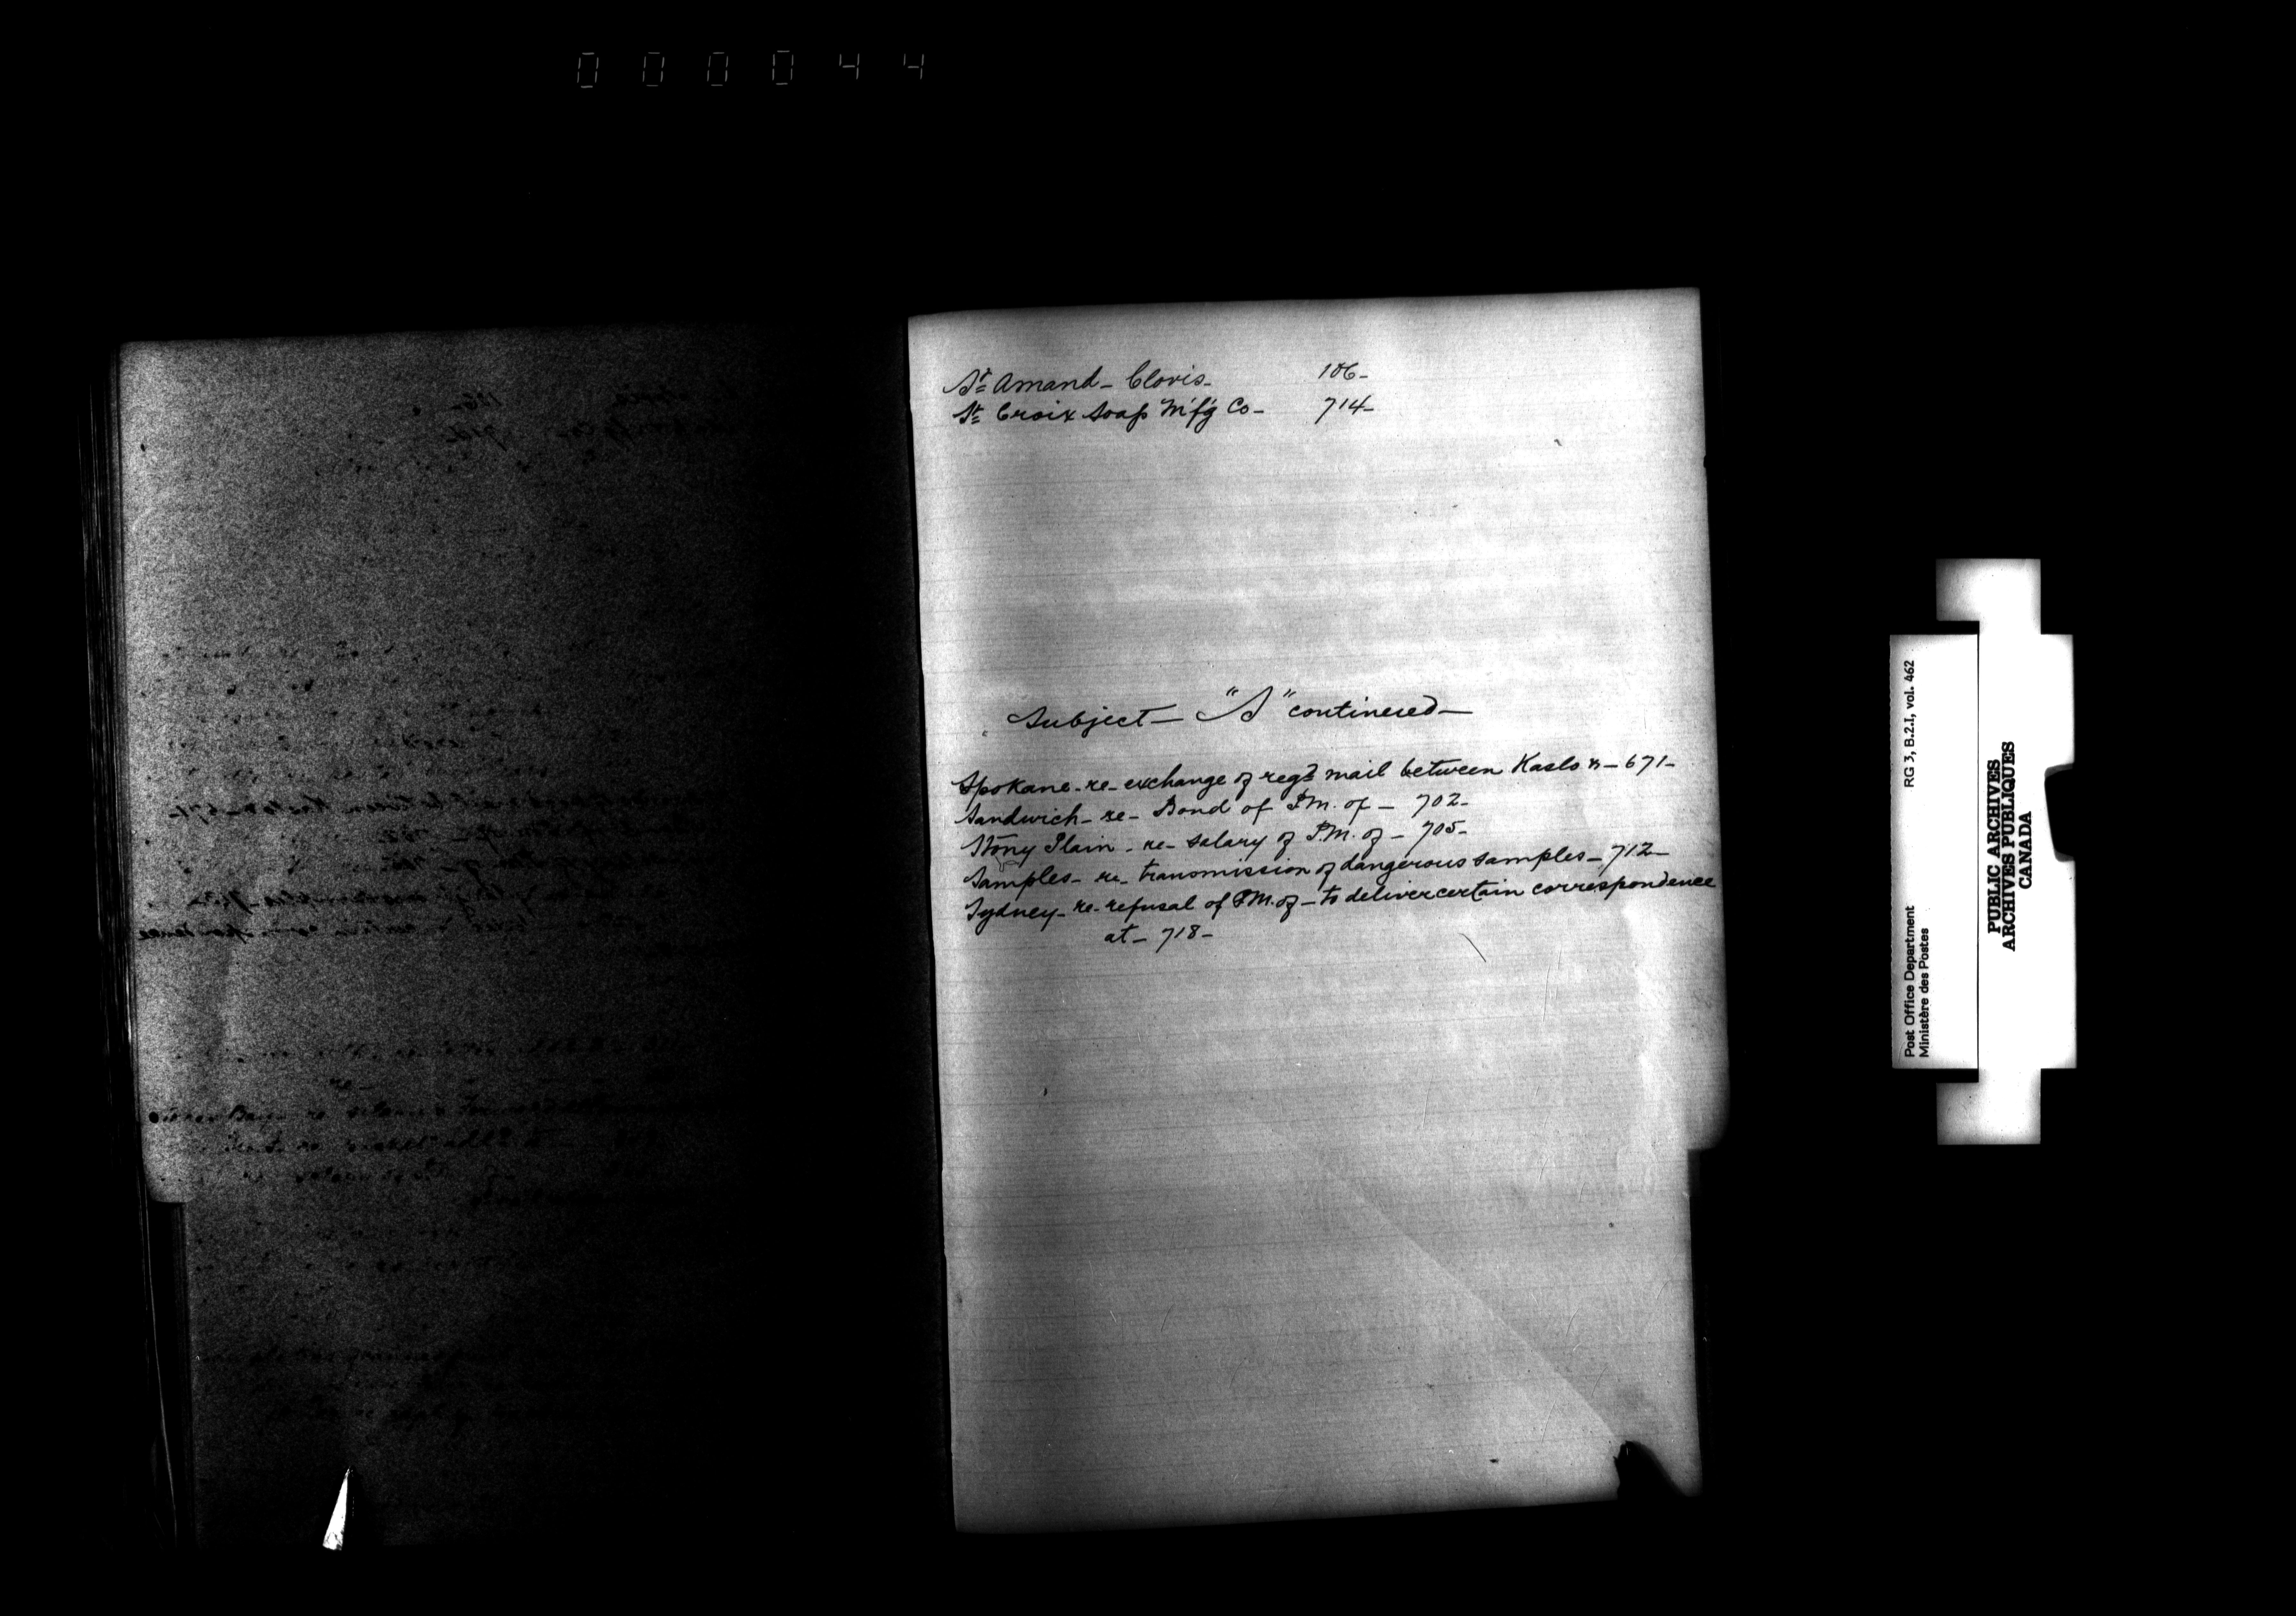 000044
St Amand - Clovis - 106 -
St Croix Soap M'f'g Co - 714 -
Subject - "S" continued -
Spokane - re - exchange of regd mail between Kaslo & - 671 -
Sandwich - re - Bond of P.M. of - 702 -
Stony Plain - re - salary of P.M. of - 705 -
Samples - re - transmission of dangerous samples - 712 -
Sydney - re - refusal of P.M. of - to deliver certain correspondence
at - 718 -
RG 3, B.2.I, vol. 462
Post Office Department
Ministère des Postes
PUBLIC ARCHIVES
ARCHIVES PUBLIQUES
CANADA